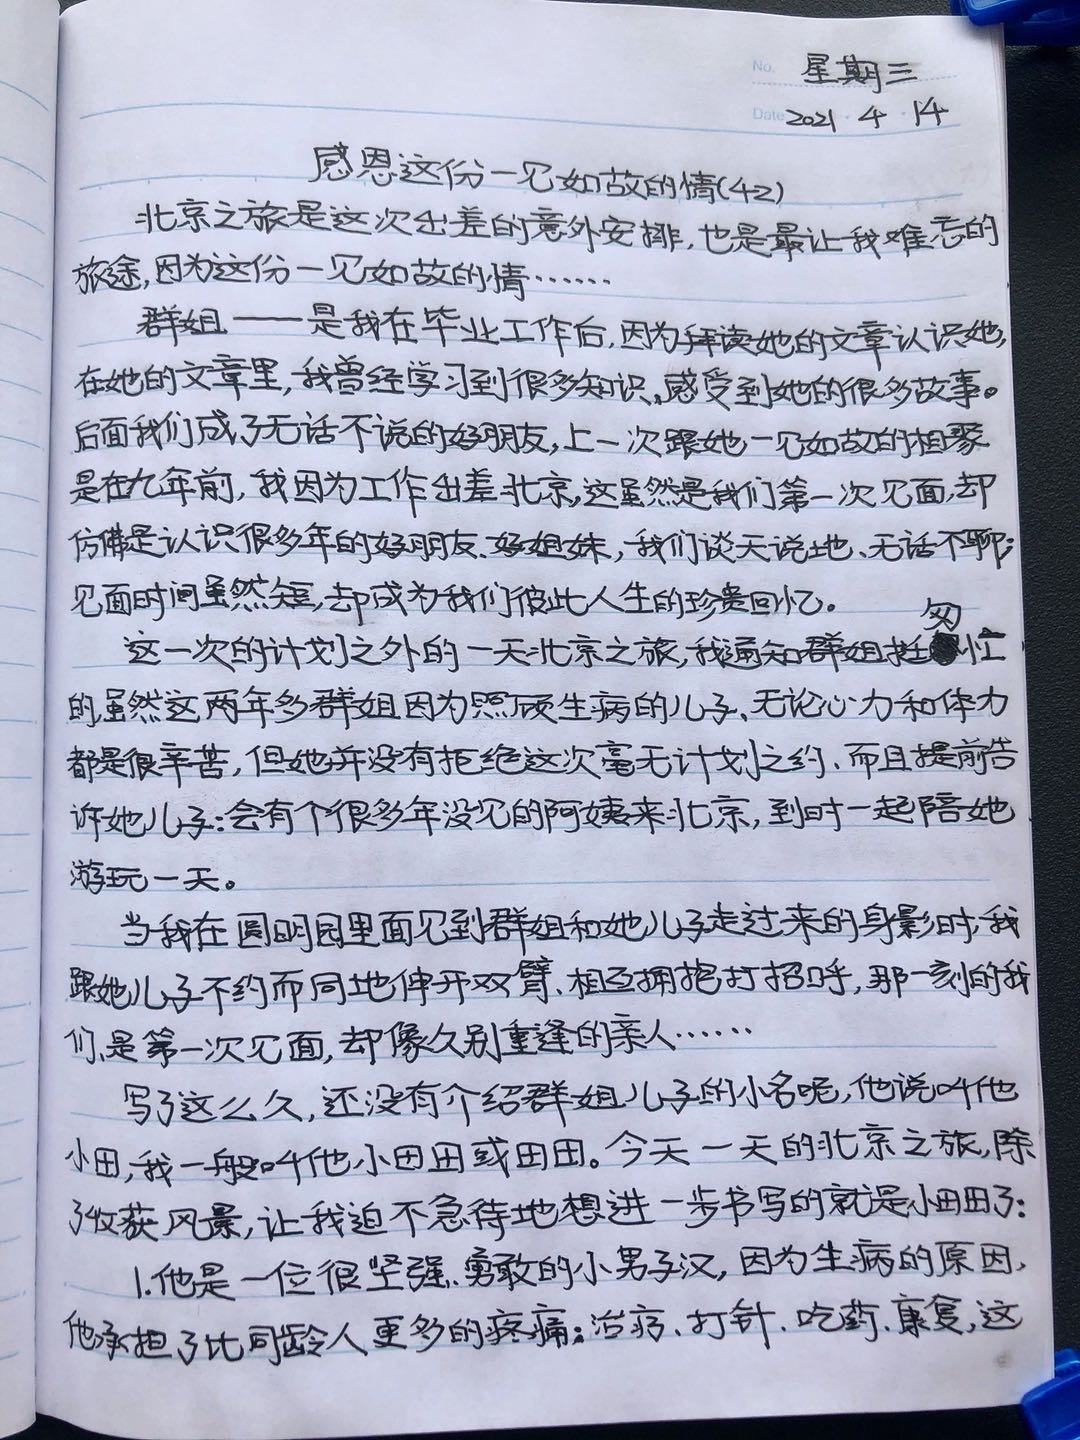 No. 星期三
Date 2021·4·14
感恩这份一见如故的情(42)
北京之旅是这次出差的意外安排,也是最让我难忘的
旅途,因为这份一见如故的情……
群姐——是我在毕业工作后,因为拜读她的文章认识她,
在她的文章里,我曾经学习到很多知识,感受到她的很多故事。
后面我们成了无话不说的好朋友,上一次跟她一见如故的相聚
是在九年前,我因为工作出差北京,这虽然是我们第一次见面,却
仿佛是认识很多年的好朋友、好姐妹,我们谈天说地、无话不聊;
见面时间虽然短,却成为我们彼此人生的珍贵回忆。
这一次的计划之外的一天北京之旅,我通知群姐挺匆忙
的,虽然这两年多群姐因为照顾生病的儿子、无论心力和体力
都是很辛苦,但她并没有拒绝这次毫无计划之约、而且提前告
诉她儿子:会有个很多年没见的阿姨来北京,到时一起陪她
游玩一天。
当我在圆明园里面见到群姐和她儿子走过来的身影时,我
跟她儿子不约而同地伸开双臂、相互拥抱打招呼,那一刻的我
们、是第一次见面,却像久别重逢的亲人……
写了这么久,还没有介绍群姐儿子的小名呢,他说叫他
小田,我一般叫他小田田或田田。今天一天的北京之旅,除
了收获风景,让我迫不急待地想进一步书写的就是小田田了:
1.他是一位很坚强、勇敢的小男子汉,因为生病的原因、
他承担了比同龄人更多的疼痛;治疗、打针、吃药、康复,这